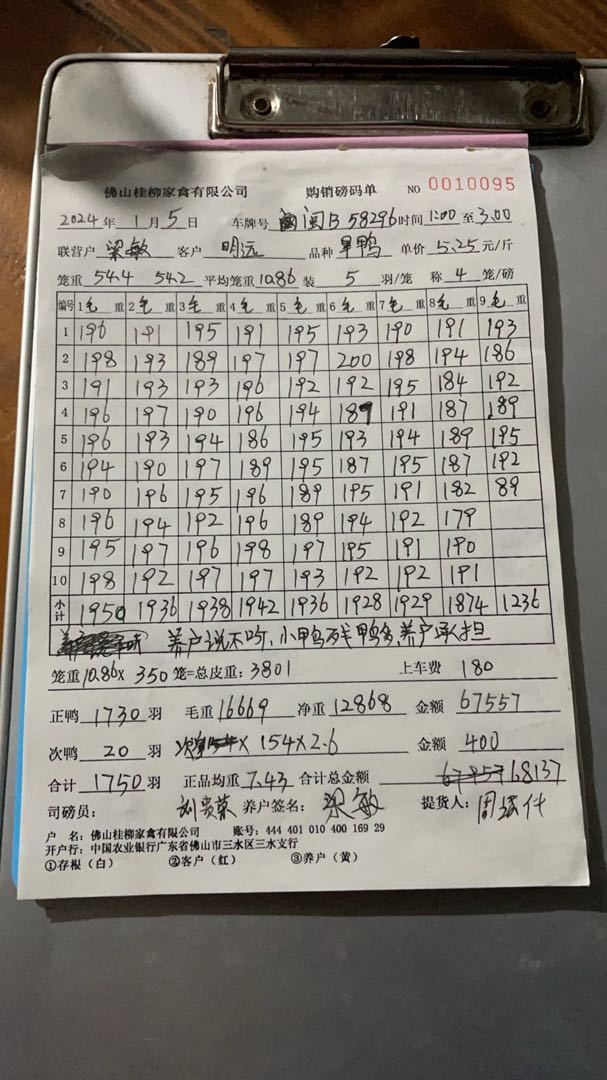 佛山桂柳家禽有限公司 购销磅码单 NO 0010095
2024年1月5日 车牌号 闽B 58296 时间 1:00 至 3.00
联营户 梁敏 客户 明远 品种 旱鸭 单价 5.25 元/斤
笼重 54.4 54.2 平均笼重 10.86 装 5 羽/笼 称 4 笼/磅
编号 1毛重 2毛重 3毛重 4毛重 5毛重 6毛重 7毛重 8毛重 9毛重
1 196 191 195 191 195 193 190 191 193
2 198 193 189 197 197 200 198 194 186
3 191 193 193 196 192 192 195 184 192
4 196 197 190 196 194 189 191 187 189
5 196 193 194 186 195 193 194 189 195
6 194 190 197 189 195 187 195 187 192
7 190 196 195 196 189 195 191 182 89
8 196 194 192 196 189 194 192 179
9 195 197 196 198 197 195 191 190
10 198 192 197 197 193 192 192 191
小计 1950 1936 1938 1942 1936 1928 1929 1874 1236
养户说不吵、小鸭残鸭多,养户承担
笼重 10.86 x 350 笼=总皮重:3801 上车费 180
正鸭 1730 羽 毛重 16669 净重 12868 金额 67557
次鸭 20 羽 x 154 x 2.6 金额 400
合计 1750 羽 正品均重 7.43 合计总金额 68137
司磅员: 养户签名: 梁敏 提货人:
户 名:佛山桂柳家禽有限公司 账号:444 401 010 400 169 29
开户行:中国农业银行广东省佛山市三水区三水支行
①存根(白) ②客户(红) ③养户(黄)